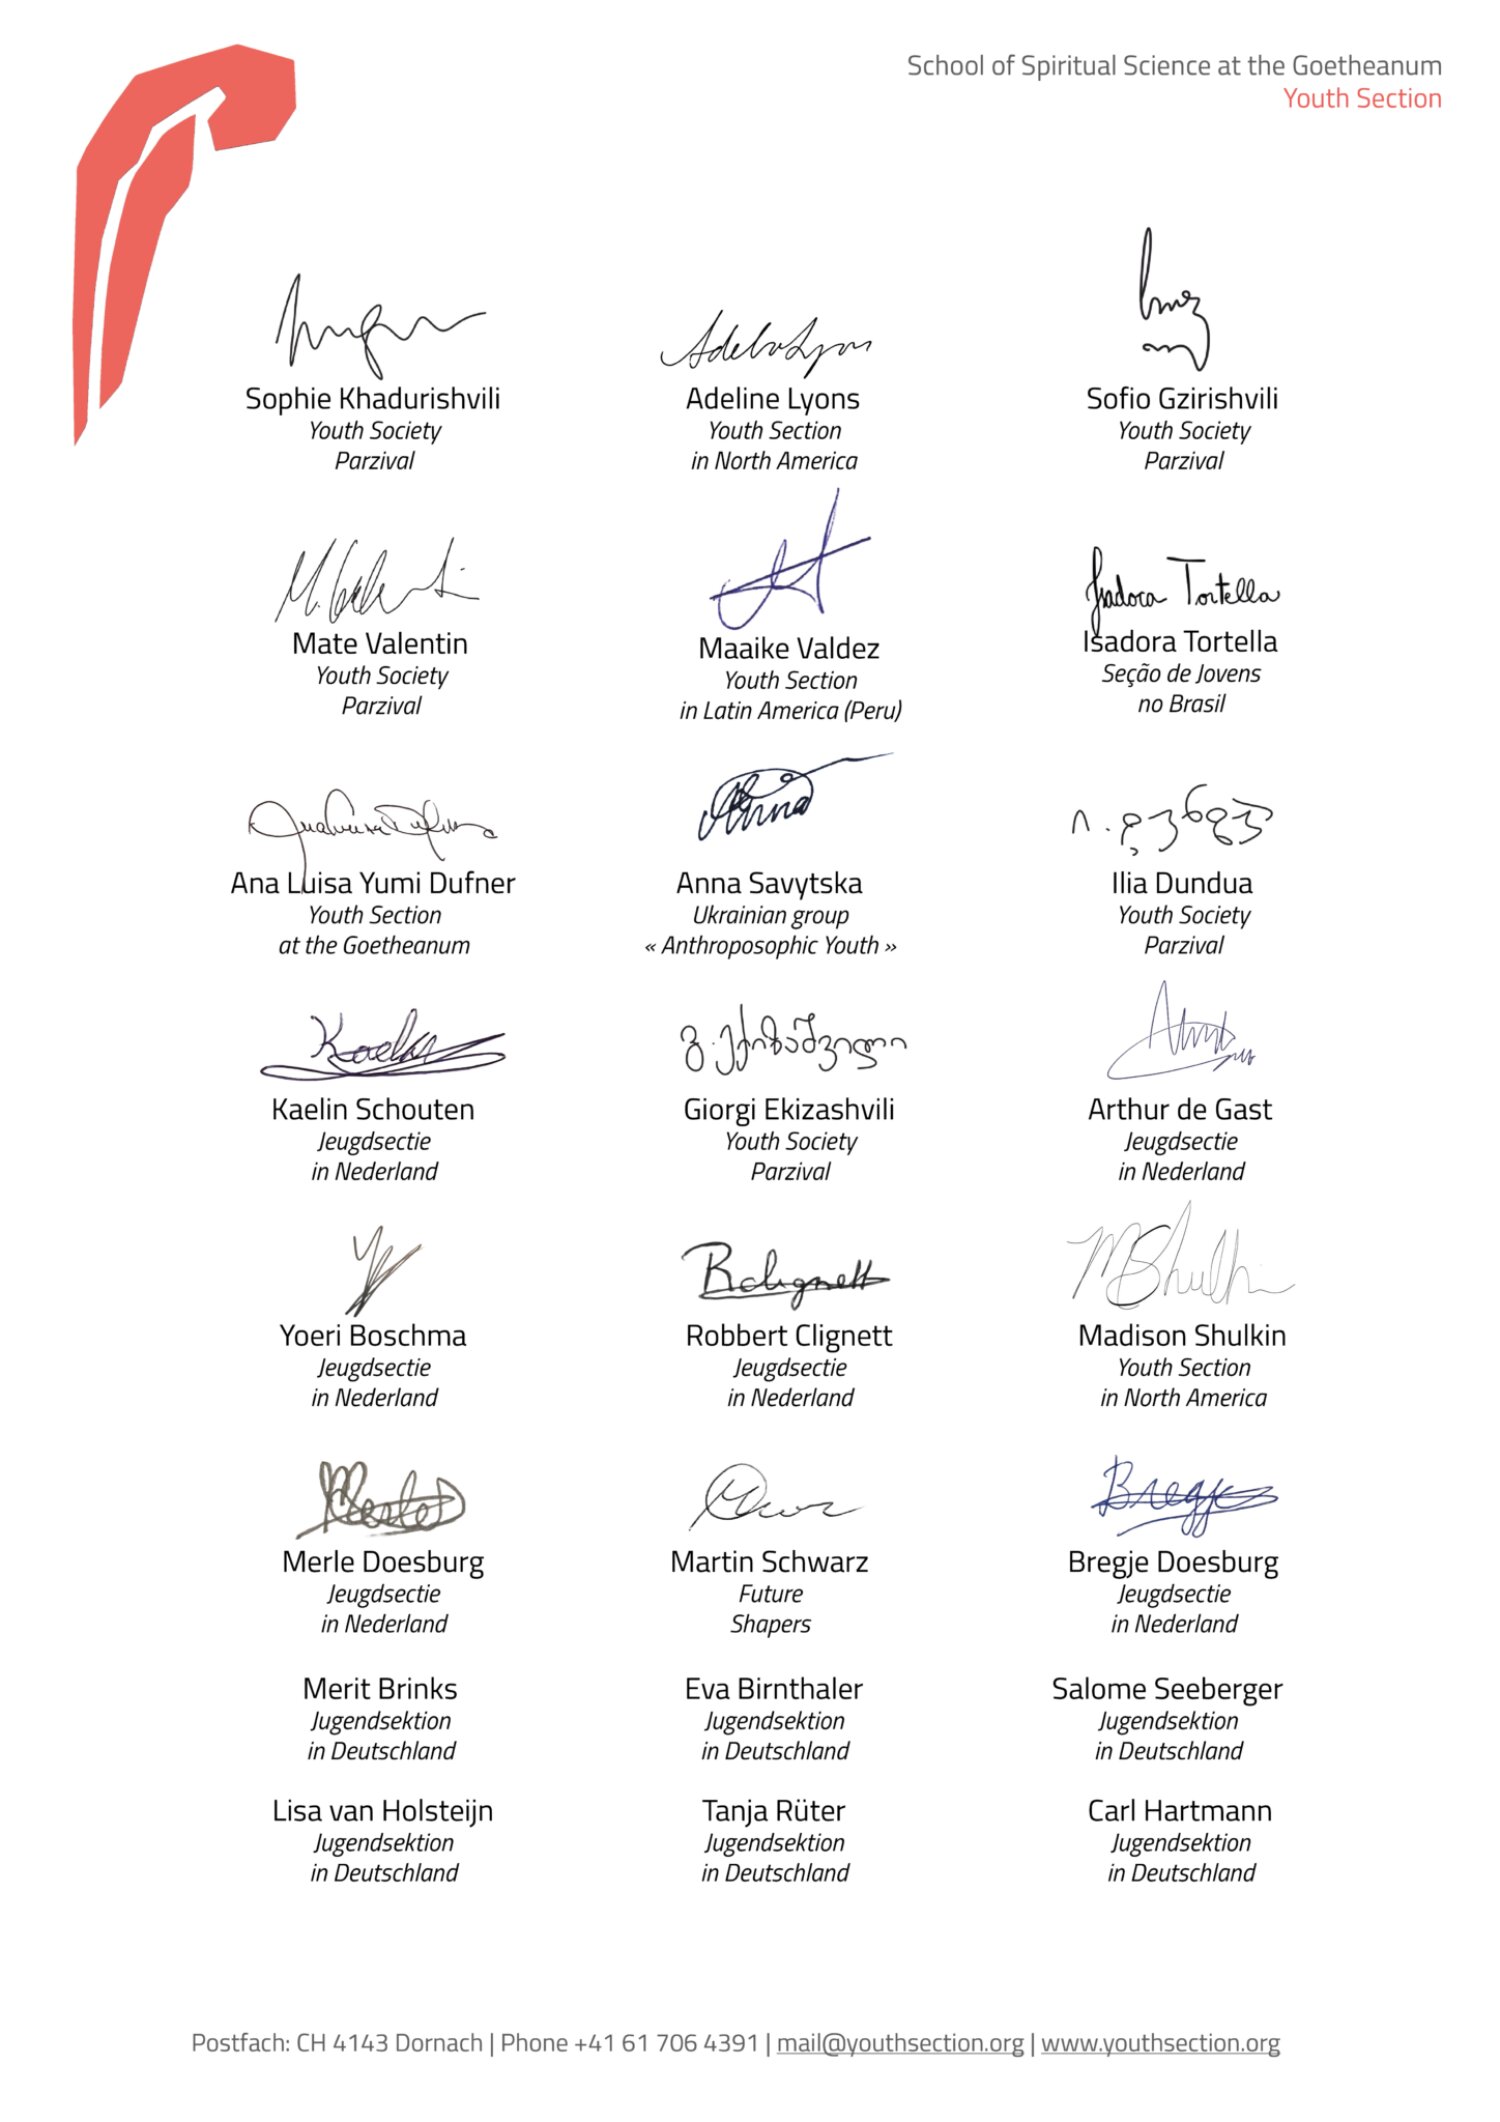 School of Spiritual Science at the Goetheanum
Youth Section
Sophie Khadurishvili
Youth Society
Parzival
Adeline Lyons
Adeline Lyons
Youth Section
in North America
Sofio Gzirishvili
Youth Society
Parzival
M. Valentin
Mate Valentin
Youth Society
Parzival
Maaike Valdez
Youth Section
in Latin America (Peru)
Isadora Tortella
Isadora Tortella
Seção de Jovens
no Brasil
Ana Luisa Yumi Dufner
Youth Section
at the Goetheanum
Anna
Anna Savytska
Ukrainian group
« Anthroposophic Youth »
Ilia Dundua
Youth Society
Parzival
Kaelin Schouten
Jeugdsectie
in Nederland
გ. ექიზაშვილი
Giorgi Ekizashvili
Youth Society
Parzival
Arthur de Gast
Jeugdsectie
in Nederland
Yoeri Boschma
Jeugdsectie
in Nederland
Robbert Clignett
Jeugdsectie
in Nederland
MShulkin
Madison Shulkin
Youth Section
in North America
Merle Doesburg
Jeugdsectie
in Nederland
Martin Schwarz
Future
Shapers
Bregje
Bregje Doesburg
Jeugdsectie
in Nederland
Merit Brinks
Jugendsektion
in Deutschland
Eva Birnthaler
Jugendsektion
in Deutschland
Salome Seeberger
Jugendsektion
in Deutschland
Lisa van Holsteijn
Jugendsektion
in Deutschland
Tanja Rüter
Jugendsektion
in Deutschland
Carl Hartmann
Jugendsektion
in Deutschland
Postfach: CH 4143 Dornach | Phone +41 61 706 4391 | mail@youthsection.org | www.youthsection.org